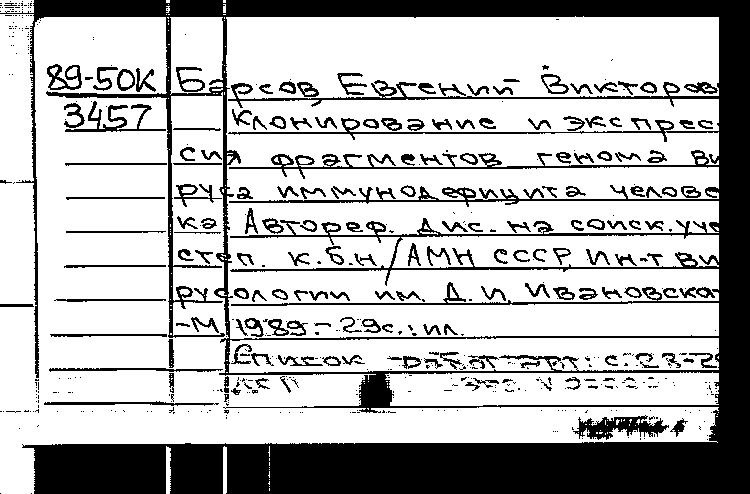 89-50К Барсов Евгений Викторов
3457 Клонирование и экспрес-
сия фрагментов генома ви
руса иммунодефицита челове
ка: Автореф. дис. на соиск. уче
степ. к.б.н. / АМН СССР, Ин-т ви
русологии им. Д. И. Ивановска
-М. 1989.- 29с.: ил.
Список работ авт.: с. 28-29